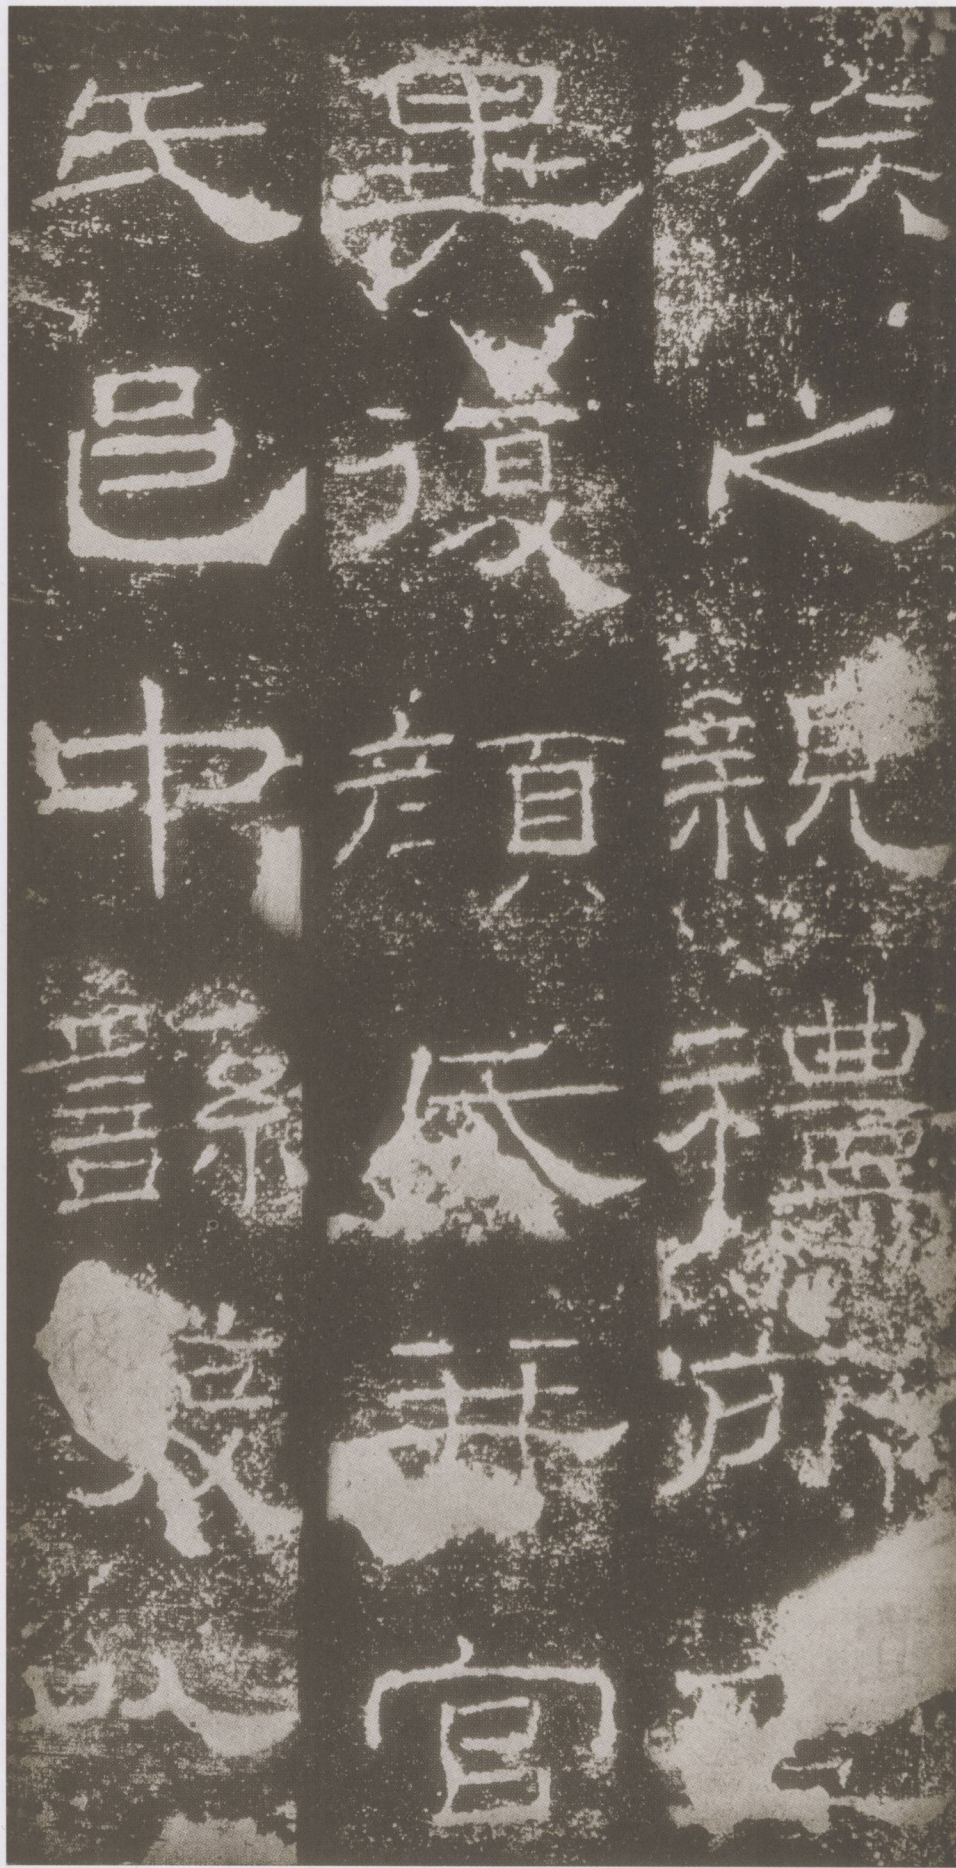 族之親禮所
異復顏氏并官
氏邑中繇發以